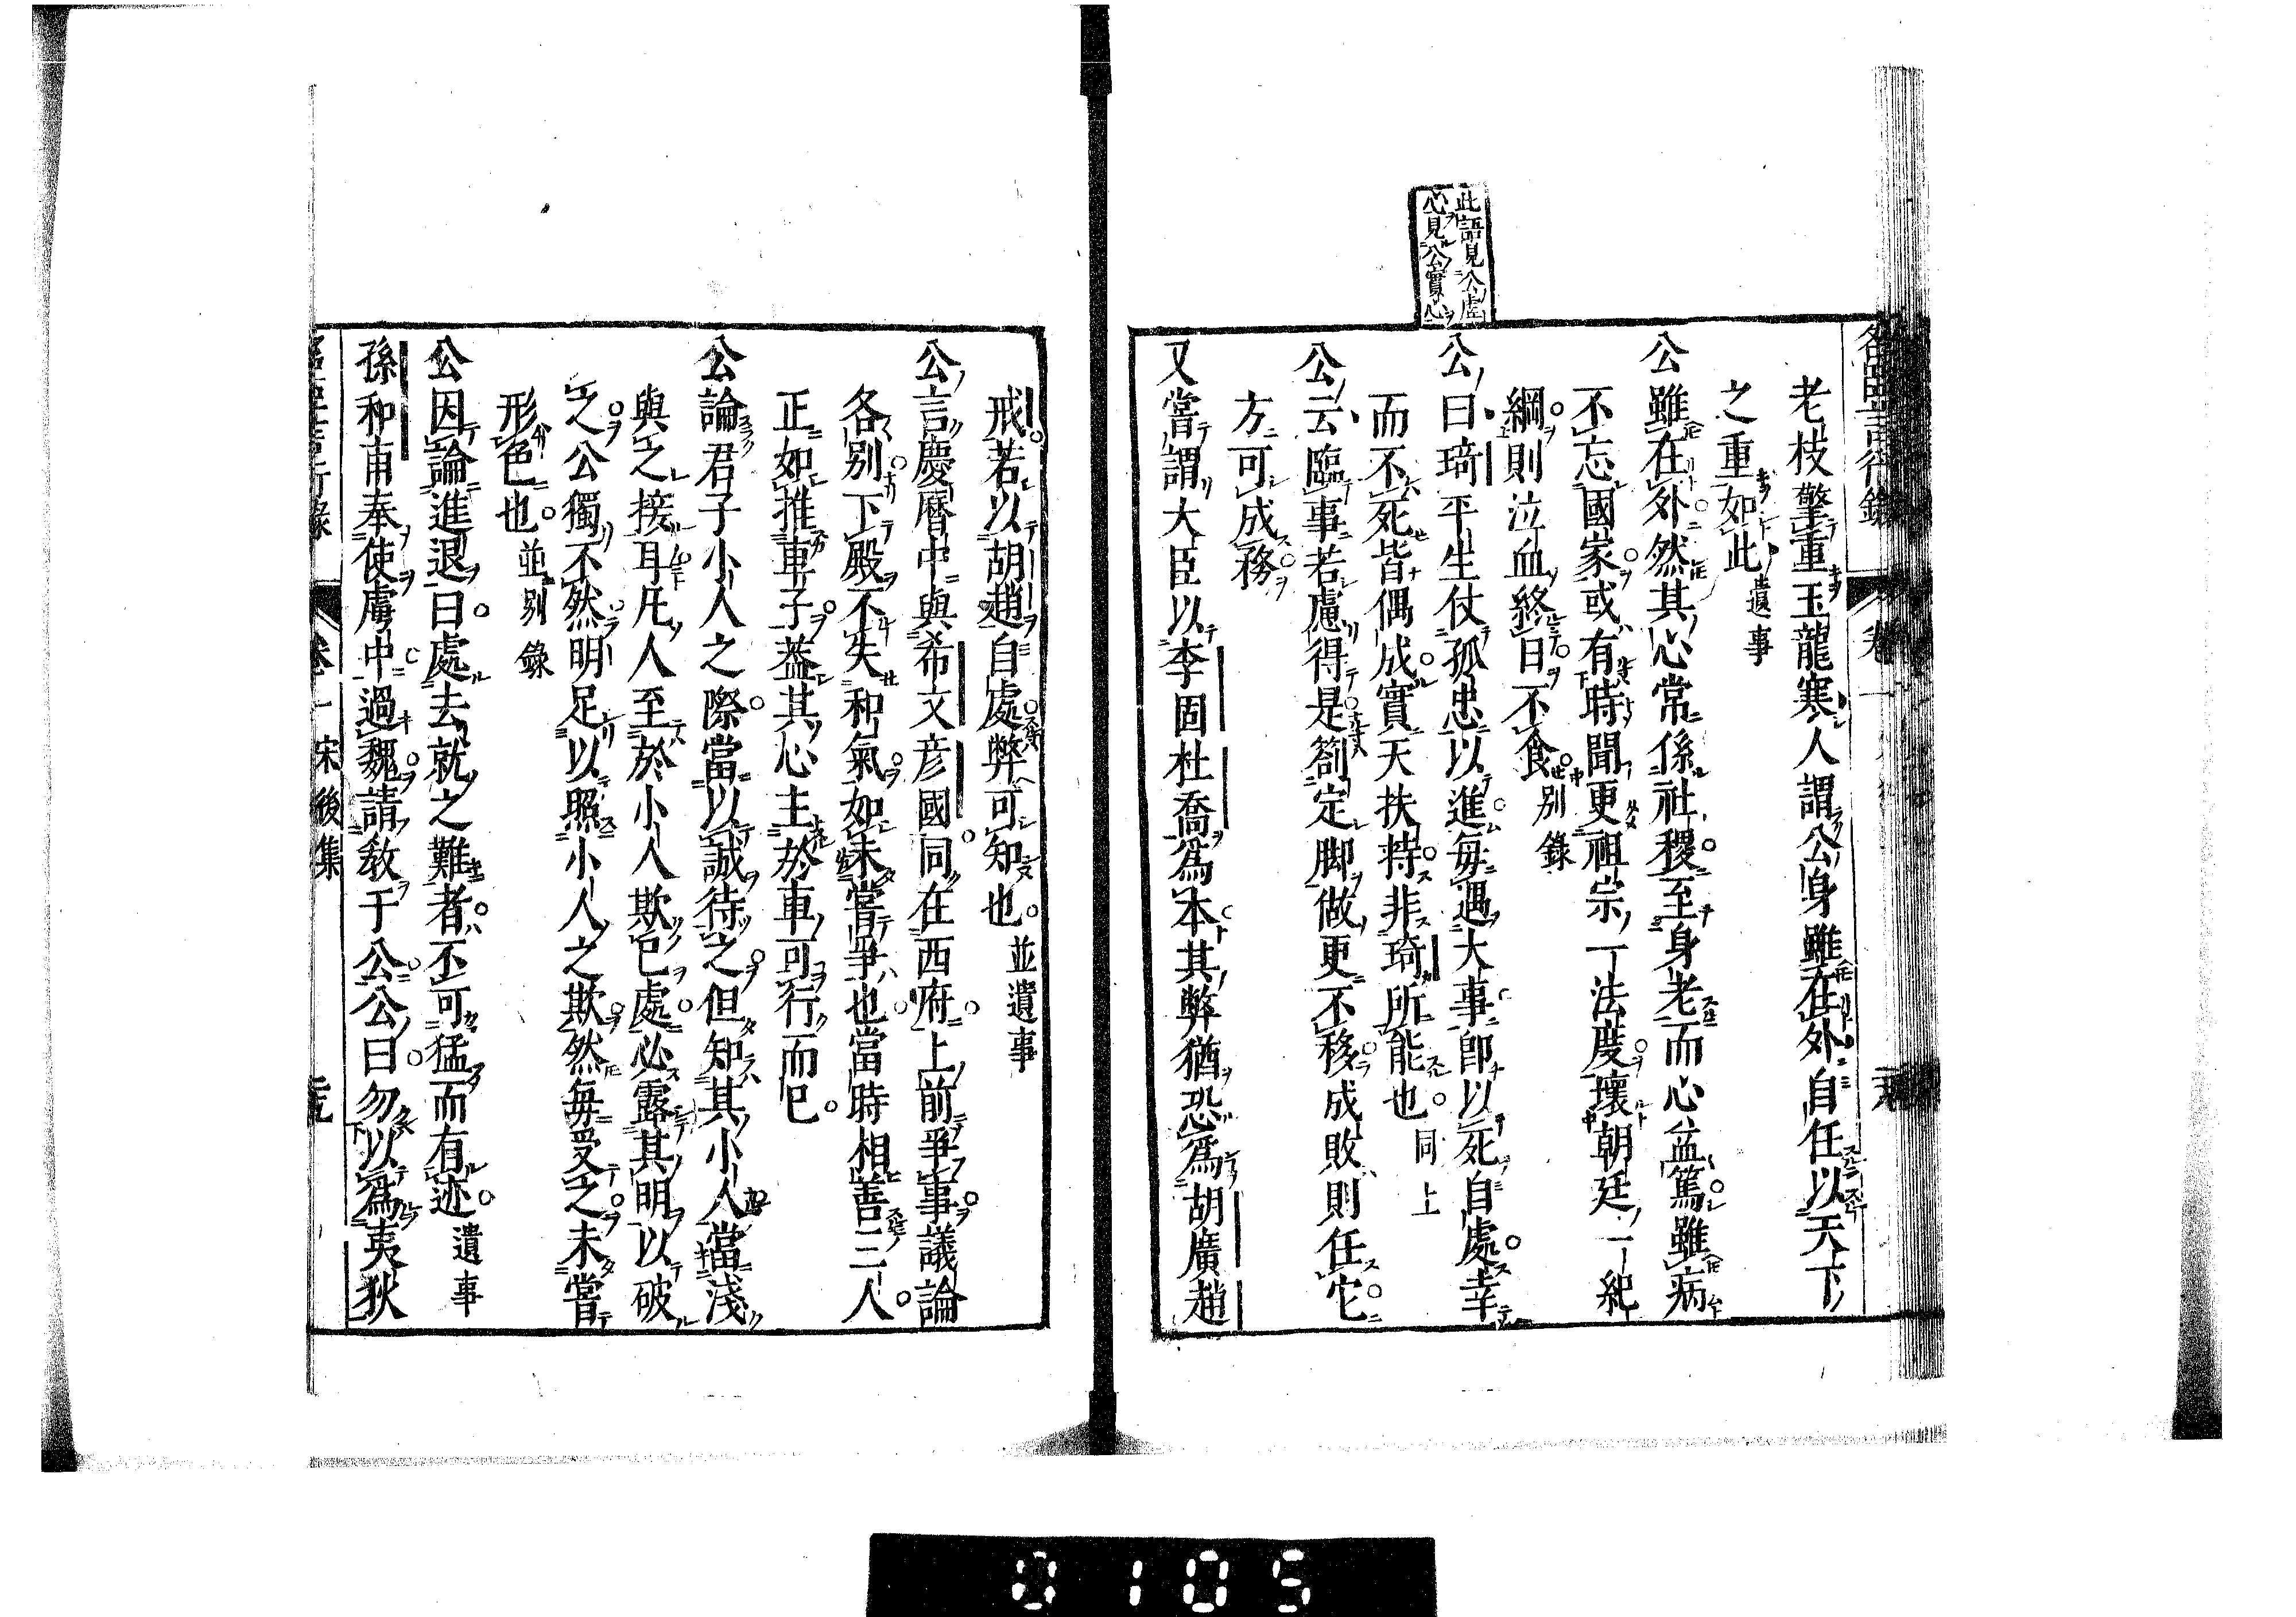 老枝擎重玉龍寒人謂公身雖在外自任以天下
之重如此遺事
公雖在外然其心常係社稷至身老而心益篤雖病
不忘國家或有時聞更祖宗一法度壞朝廷一紀
綱則泣血終日不食別錄
此語見公虛
心見公實心
公曰琦平生仗孤忠以進每遇大事卽以死自處幸
而不死皆偶成實天扶持非琦所能也同上
公云臨事若慮得是劄定脚做更不移成敗則任它
方可成務
又嘗謂大臣以李固杜喬爲本其弊猶恐爲胡廣趙
戒若以胡趙自處弊可知也並遺事
公言慶曆中與希文彦國同在西府上前爭事議論
各別下殿不失和氣如未嘗爭也當時相善三人
正如推車子葢其心主於車可行而已
公論君子小人之際當以誠待之但知其小人當淺
與之接耳凡人至於小人欺已處必露其明以破
之公獨不然明足以照小人之欺然每受之未嘗
形色也並別錄
公因論進退曰處去就之難者不可猛而有迹遺事
孫和甫奉使虜中過魏請敎于公公曰勿以爲夷狄
卷一宋後集